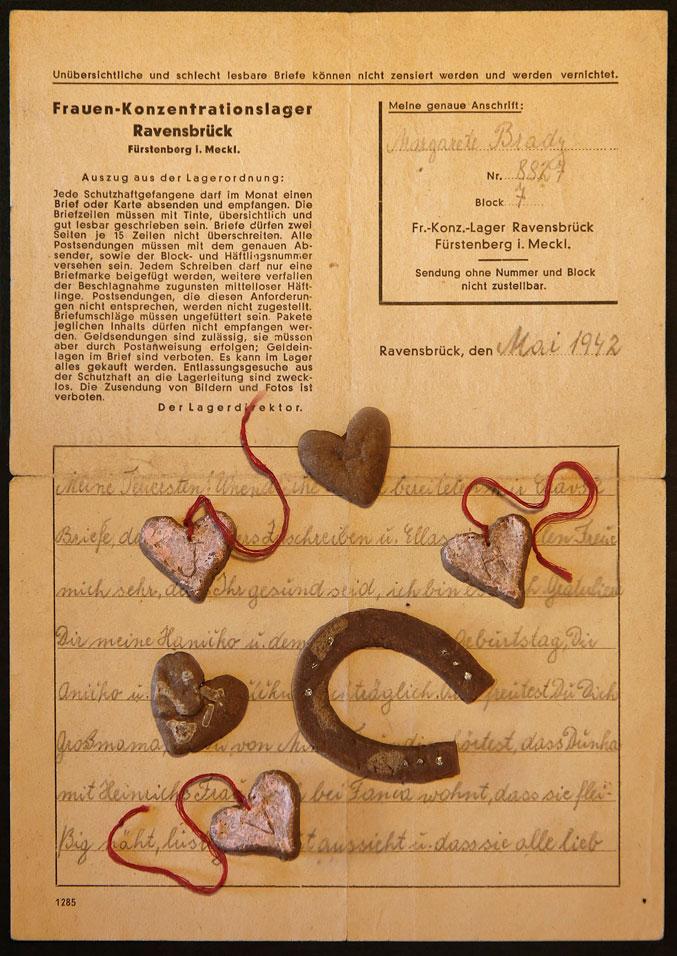 Unübersichtliche und schlecht lesbare Briefe können nicht zensiert werden und werden vernichtet.
Frauen-Konzentrationslager
Ravensbrück
Fürstenberg i. Meckl.
Auszug aus der Lagerordnung:
Jede Schutzhaftgefangene darf im Monat einen
Brief oder Karte absenden und empfangen. Die
Briefzeilen müssen mit Tinte, übersichtlich und
gut lesbar geschrieben sein. Briefe dürfen zwei
Seiten je 15 Zeilen nicht überschreiten. Alle
Postsendungen müssen mit dem genauen Ab-
sender, sowie der Block- und Häftlingsnummer
versehen sein. Jedem Schreiben darf nur eine
Briefmarke beigefügt werden, weitere verfallen
der Beschlagnahme zugunsten mittelloser Häft-
linge. Postsendungen, die diesen Anforderun-
gen nicht entsprechen, werden nicht zugestellt.
Briefumschläge müssen ungefüttert sein. Pakete
jeglichen Inhalts dürfen nicht empfangen wer-
den. Geldsendungen sind zulässig, sie müssen
aber durch Postanweisung erfolgen; Geldein-
lagen im Brief sind verboten. Es kann im Lager
alles gekauft werden. Entlassungsgesuche aus
der Schutzhaft an die Lagerleitung sind zweck-
los. Die Zusendung von Bildern und Fotos ist
verboten.
Der Lagerdirektor.
Meine genaue Anschrift:
Margarete Brady
Nr. 8827
Block 7
Fr.-Konz.-Lager Ravensbrück
Fürstenberg i. Meckl.
Sendung ohne Nummer und Block
nicht zustellbar.
Ravensbrück, den Mai 1942
Meine Teuersten! bereiteten mir
Briefe, schreiben u. Ellas Freue
mich sehr, Ihr gesund seid, ich bin Gratuliere
Dir meine u. dem Geburtstag, Dir
u. nachträglich. freutest Du Dich
Grossmama, von hörtest, dass
mit Heinrichs Frau bei wohnt, dass sie flei-
ßig näht, aussieht u. dass sie alle lieb
1285